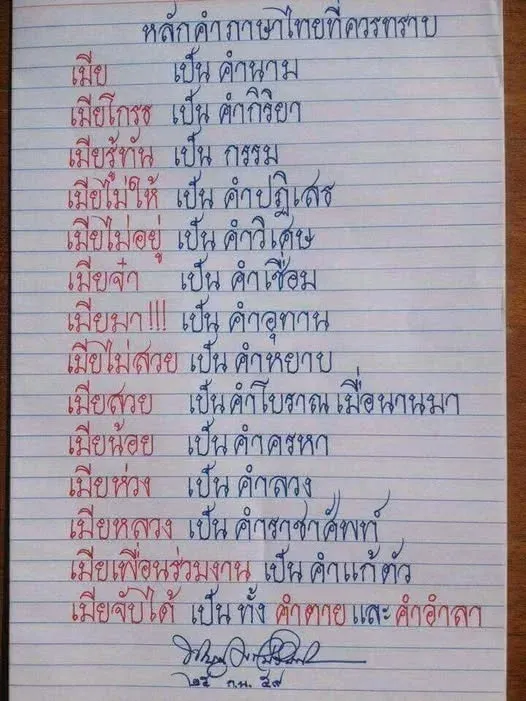 หลักคำภาษาไทยที่ควรทราบ
เมีย เป็น คำนาม
เมียโกรธ เป็น คำกิริยา
เมียรู้ทัน เป็น กรรม
เมียไม่ให้ เป็น คำปฏิเสธ
เมียไม่อยู่ เป็น คำวิเศษ
เมียจ๋า เป็น คำเชื่อม
เมียมา!!! เป็น คำอุทาน
เมียไม่สวย เป็น คำหยาบ
เมียสวย เป็นคำโบราณ เมื่อนานมา
เมียน้อย เป็น คำครหา
เมียห่วง เป็น คำลวง
เมียหลวง เป็น คำราชาศัพท์
เมียเพื่อนร่วมงาน เป็น คำแก้ตัว
เมียจับได้ เป็น ทั้ง คำตาย และ คำอำลา
๒๕ ก.พ. ๕๙